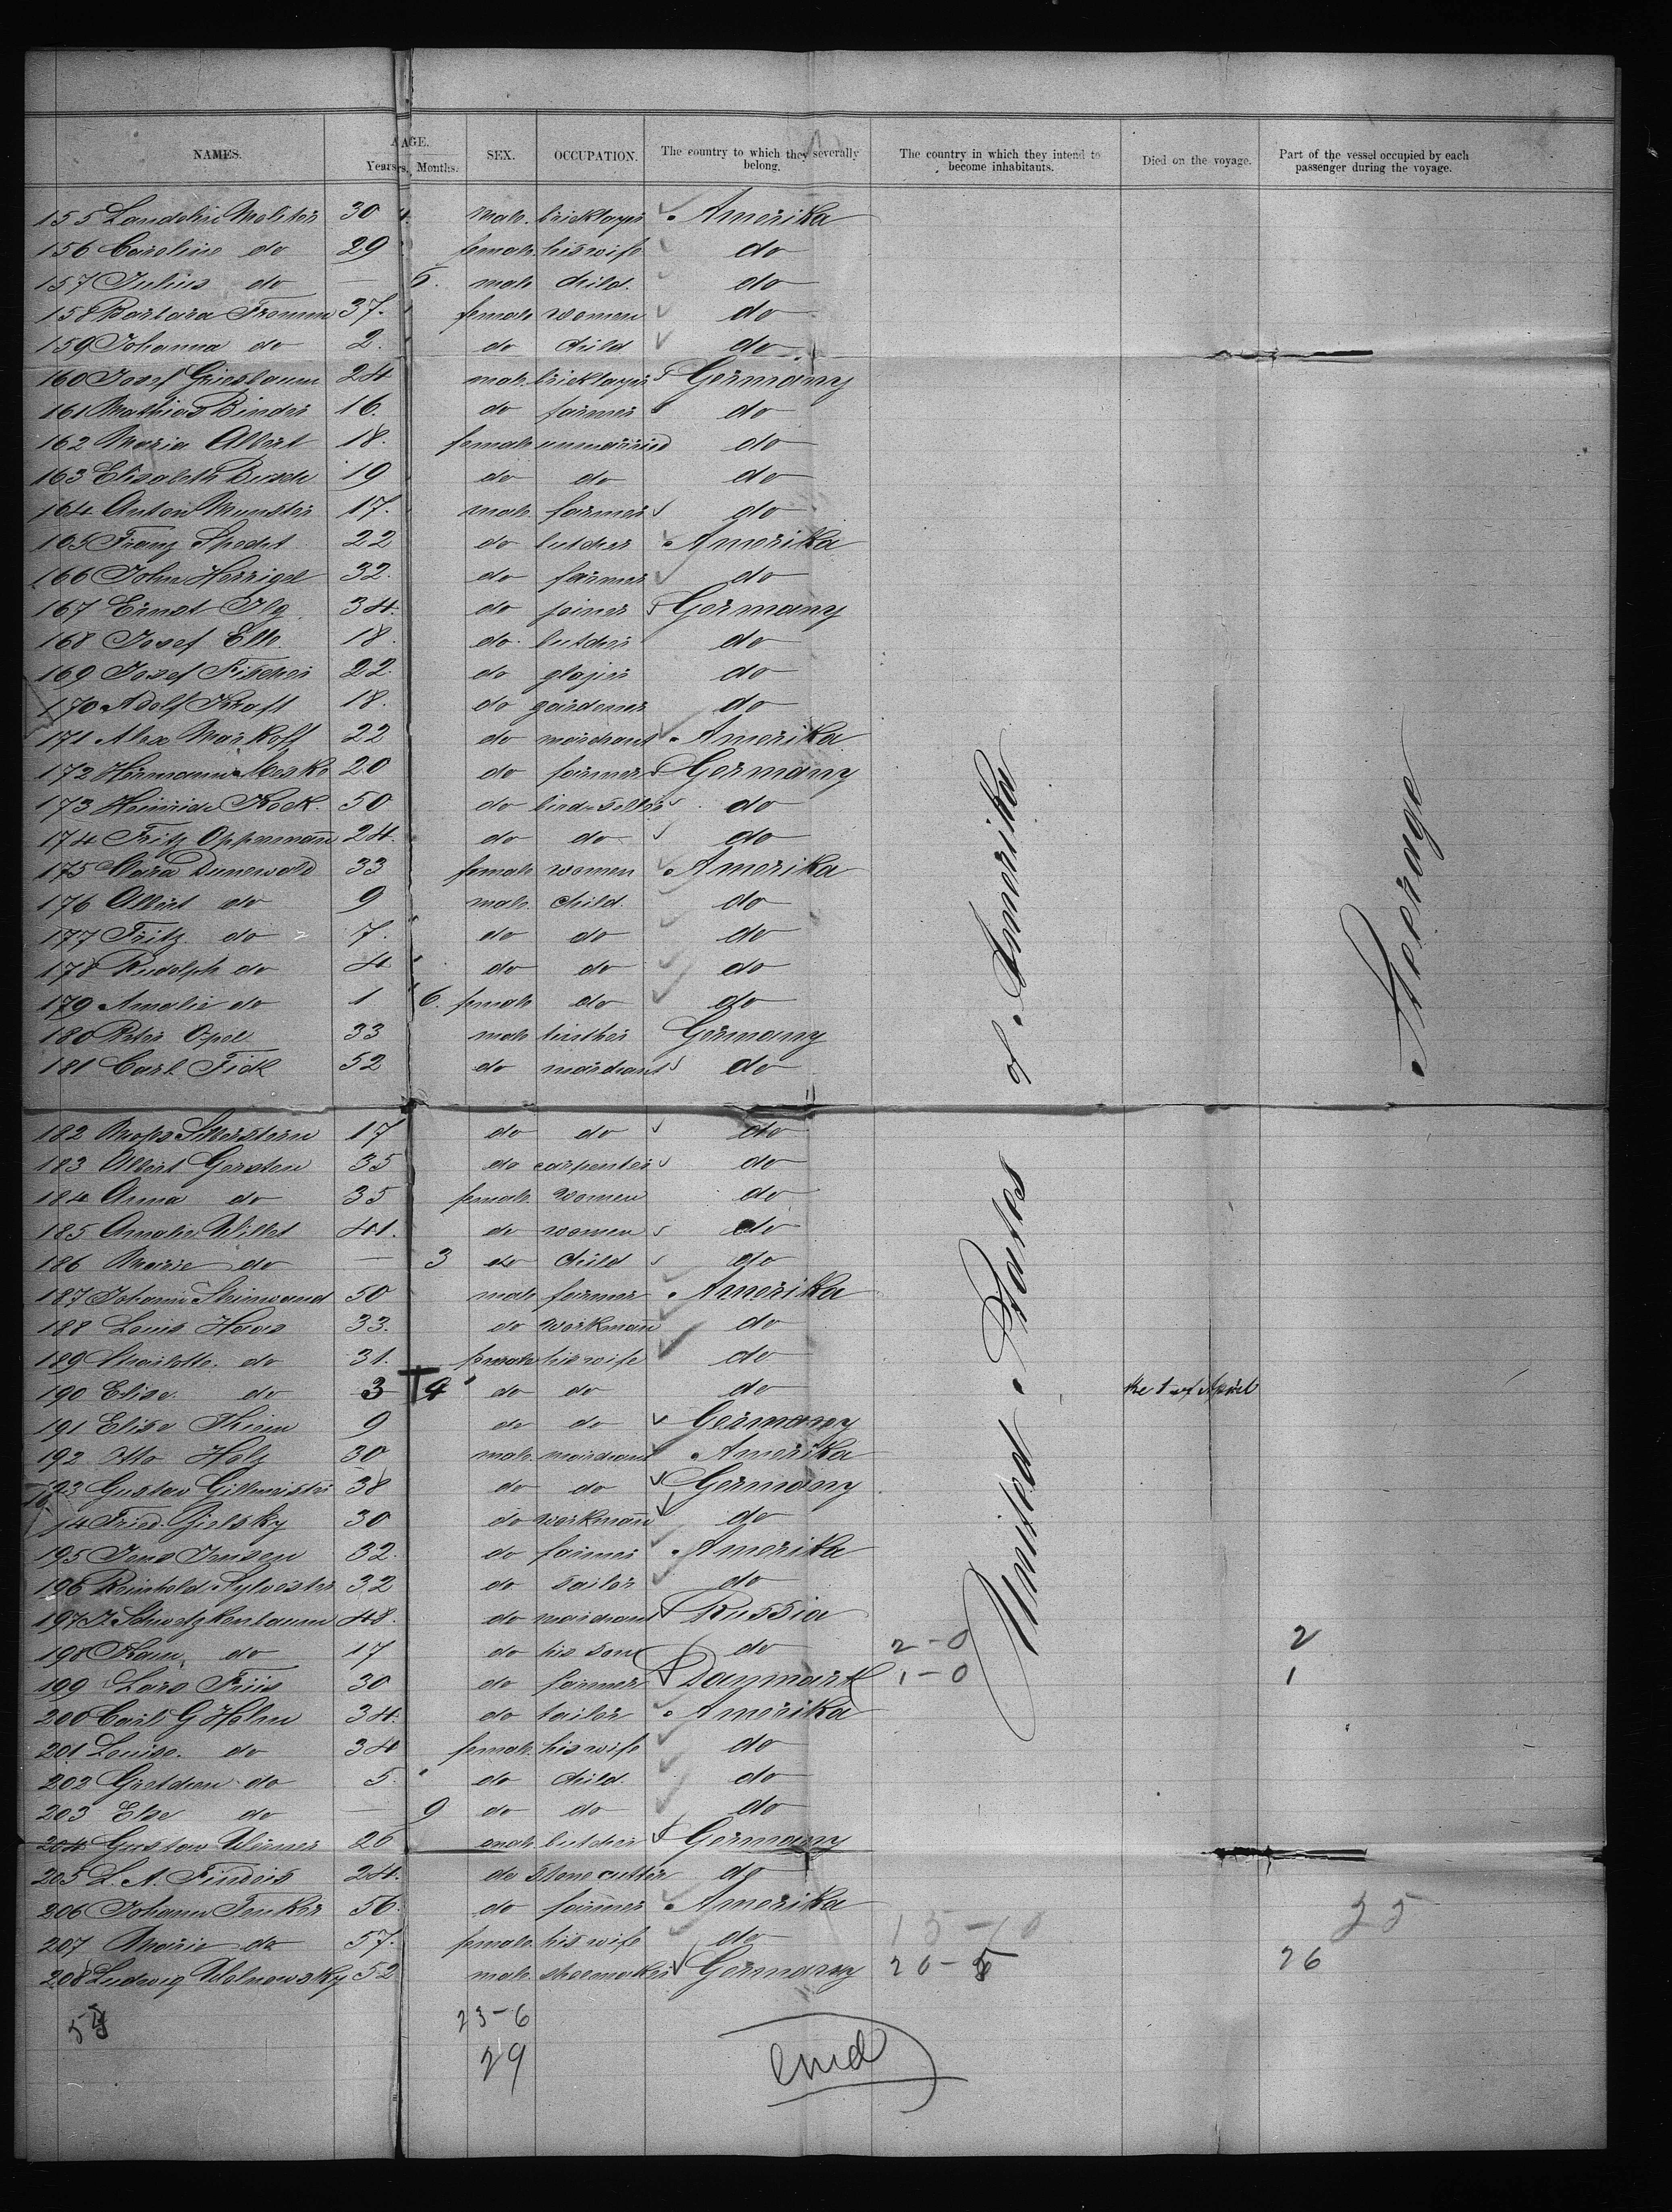 NAMES. AGE. SEX. OCCUPATION. The country to which they severally belong. The country in which they intend to become inhabitants. Died on the voyage. Part of the vessel occupied by each passenger during the voyage.
Years. Months.
155 Landolin Molitor 30 male bricklayer Amerika
156 Caroline do 29 female his wife do
157 Julius do — 6. male child. do
158 Barbara Fromm 37. female women do
159 Johanna do 2. do child do
160 Josef Griesbaum 24 male bricklayer Germany
161 Mathias Binder 16. do farmer do
162 Maria Albert 18. female unmarried do
163 Elisabeth Busch 19 do do do
164 Anton Munster 17. male farmer do
165 Franz Specht 22 do butcher Amerika
166 John Herrigel 32. do farmer do
167 Ernst Ilg 34. do joiner Germany
168 Josef Elle 18. do butcher do
169 Josef Fischer 22. do do
170 Adolf Kraft 18. do gardener do
171 Alex Markoff 22 do merchant Amerika
172 Hermann Meske 20 do farmer Germany
173 Heinrich Kock. 50 do bird-seller do
174 Fritz Oppermann 24. do do do
175 Clara Dunewald 33 female women Amerika
176 Albert do 9 male child. do
177 Fritz do 7. do do do
178 Rudolph do 4 do do do
179 Amalie do 1 6. female do do
180 Peter Opel 33 male Germany
181 Carl Fick 52 do merchant do
182 Silberstein 17 do do do
183 Albert Gersten 35 do carpenter do
184 Anna do 35 female women do
185 Amalie Willet 41. do women do
186 Marie do — 3 do child do
187 Johann Steinwand 50 male farmer Amerika
188 Louis Haas 33. do workmann do
189 Charlotte do 31. female his wife do
190 Elise do 3 4 do do do the 1 of April
191 Elise Thiem 9 do do Germany
192 Otto Holz 30 male merchant Amerika
193 Gustav Gillmeister 38 do do Germany
194 Fried. Gielsky 30 do workmann do
195 Jens Jensen 32. do farmer Amerika
196 Reinhold Sylvester 32 do sailor do
197 J. 48. do merchant Russia
198 do 17 do his son do 2 - 0 2
199 Lars Friis 30 do farmer Danmark 1 - 0 1
200 Carl G Holm 34. do tailor Amerika
201 Louise. do 34 female his wife do
202 Gretchen do 5. do child. do
203 Else do — 9 do do do
204 Gustav Werner 26 male butcher Germany
205 L. A. Findeis 24. do stone cutter do
206 Johann Tenker 56. do farmer Amerika
207 Marie do 57. female his wife do 15 - 10 25
208 Ludwig Wolnowsky 52 male shoemaker Germany 20 - 26
United States of Amerika
Steerage
23-6
29
end